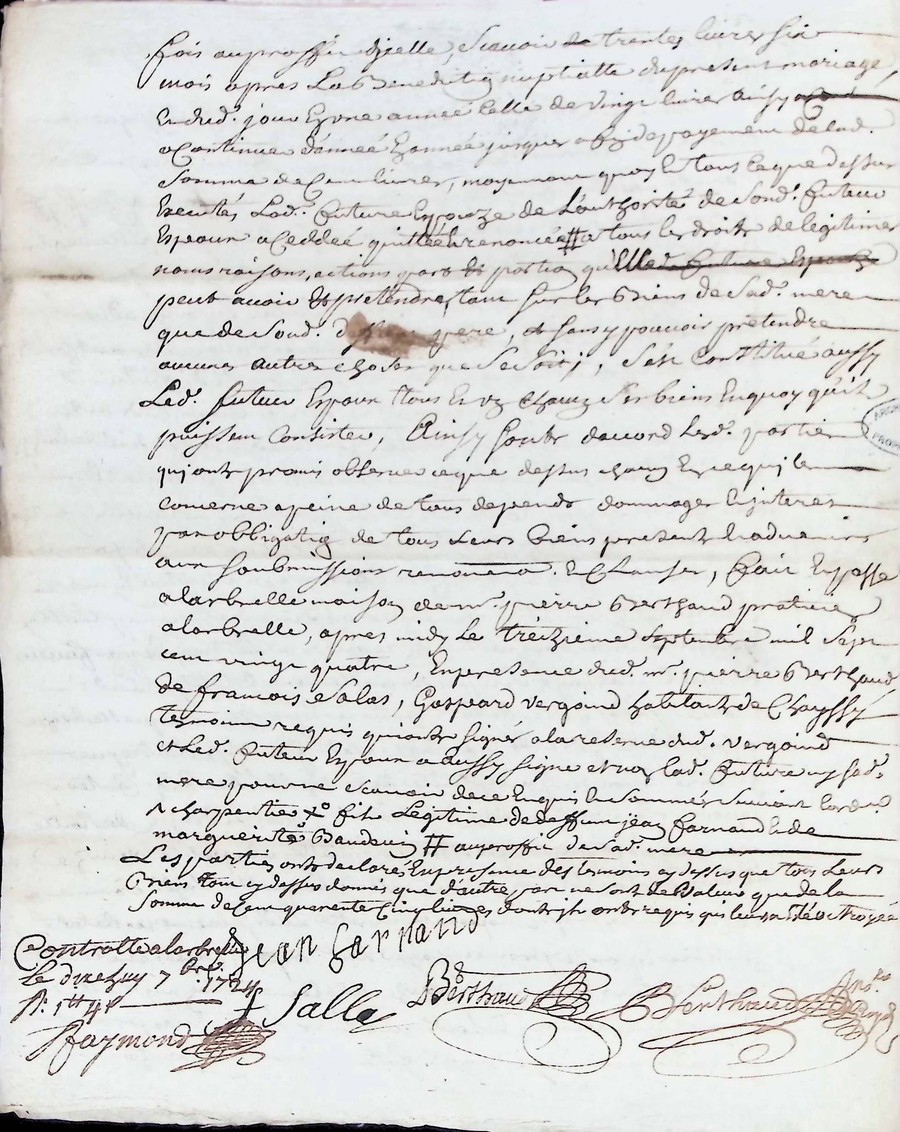 fois au proffit d'icelle, scavoir de trentes livres six
mois apres La Benediction nuptialle du present mariage,
Endud. jour En une année Celle de vingt livres Ainsy
a Continuer d'année En année jusques a fin de payement de lad.
Somme de Cent livres, moyennant quoy le tous Ce que dessus
Executés Lad. future Espouze de L'authorité de Sond. futeur
Espoux a Ceddée quittée Et renoncée # a tous les droits de legitimes
noms raisons, actions part Et portion qu'Ellad. future Espouze
peut avoir Et prétendre, tant sur les Biens de Sad. mere
que de Sond. deffunt pere, et sans y pouvoir prétendre
aucunes autres choses que Ce Soit, S'est Constitué aussy
Led. futeur Espoux tous Et uz chacuz Ses biens En quoy qu'il
puissent Consister, Ainsy Sont d'accord Lesd. parties
qui ont promis observer ce que dessus chacun En ce qui les
concerne a peine de tous depends dommages Et interets
par obbligation de tous Leurs Biens presents Et advenirs
aux Soubmissions renonca. Et Clauses, Fait Et passé
a larbrelle maison de mr. pierre Berthaud praticien
a larbrelle, apres midy Le treizieme Septembre mil Sept
cent vingt quatre, En presence dud. mr. pierre Berthaud
de francois Salas, Gaspard vergoind habitants de Chayssy
temoins requis qui ont signer a la reserve dud. vergoind
et Led. futeur Espoux a aussy signe et non lad. future ny Sad.
mere pour ne Scavoir de ce Enquis Et Sommés Suivant l'ordce
charpentier fils Légitime de deffunt jean farnaud Et de
marguerite Baudevin # au proffit de Sad. mere
Les parties ont declarés En presence des temoins cy dessus que tous Leurs
Biens tant cy dessus donnés que d'autre part ne sont de valeur que de la
Somme de Cent quarente Cinq livres dont ils ont requis qui leurs a été octroyée
Jean farnand
Controllé a larbrelle
Le dixe huy 7bre. 1724
R. 1# 4s
Raymond
f Salla
Berthaud
Berthaud